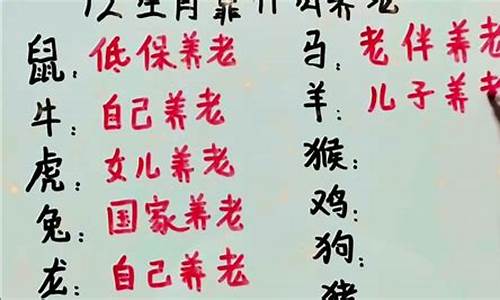 12生肖靠什么养老
鼠：低保养老
牛：自己养老
虎：女儿养老
兔：国家养老
龙：自己养老
马：老伴养老
羊：儿子养老
猴：
鸡：
狗：
猪